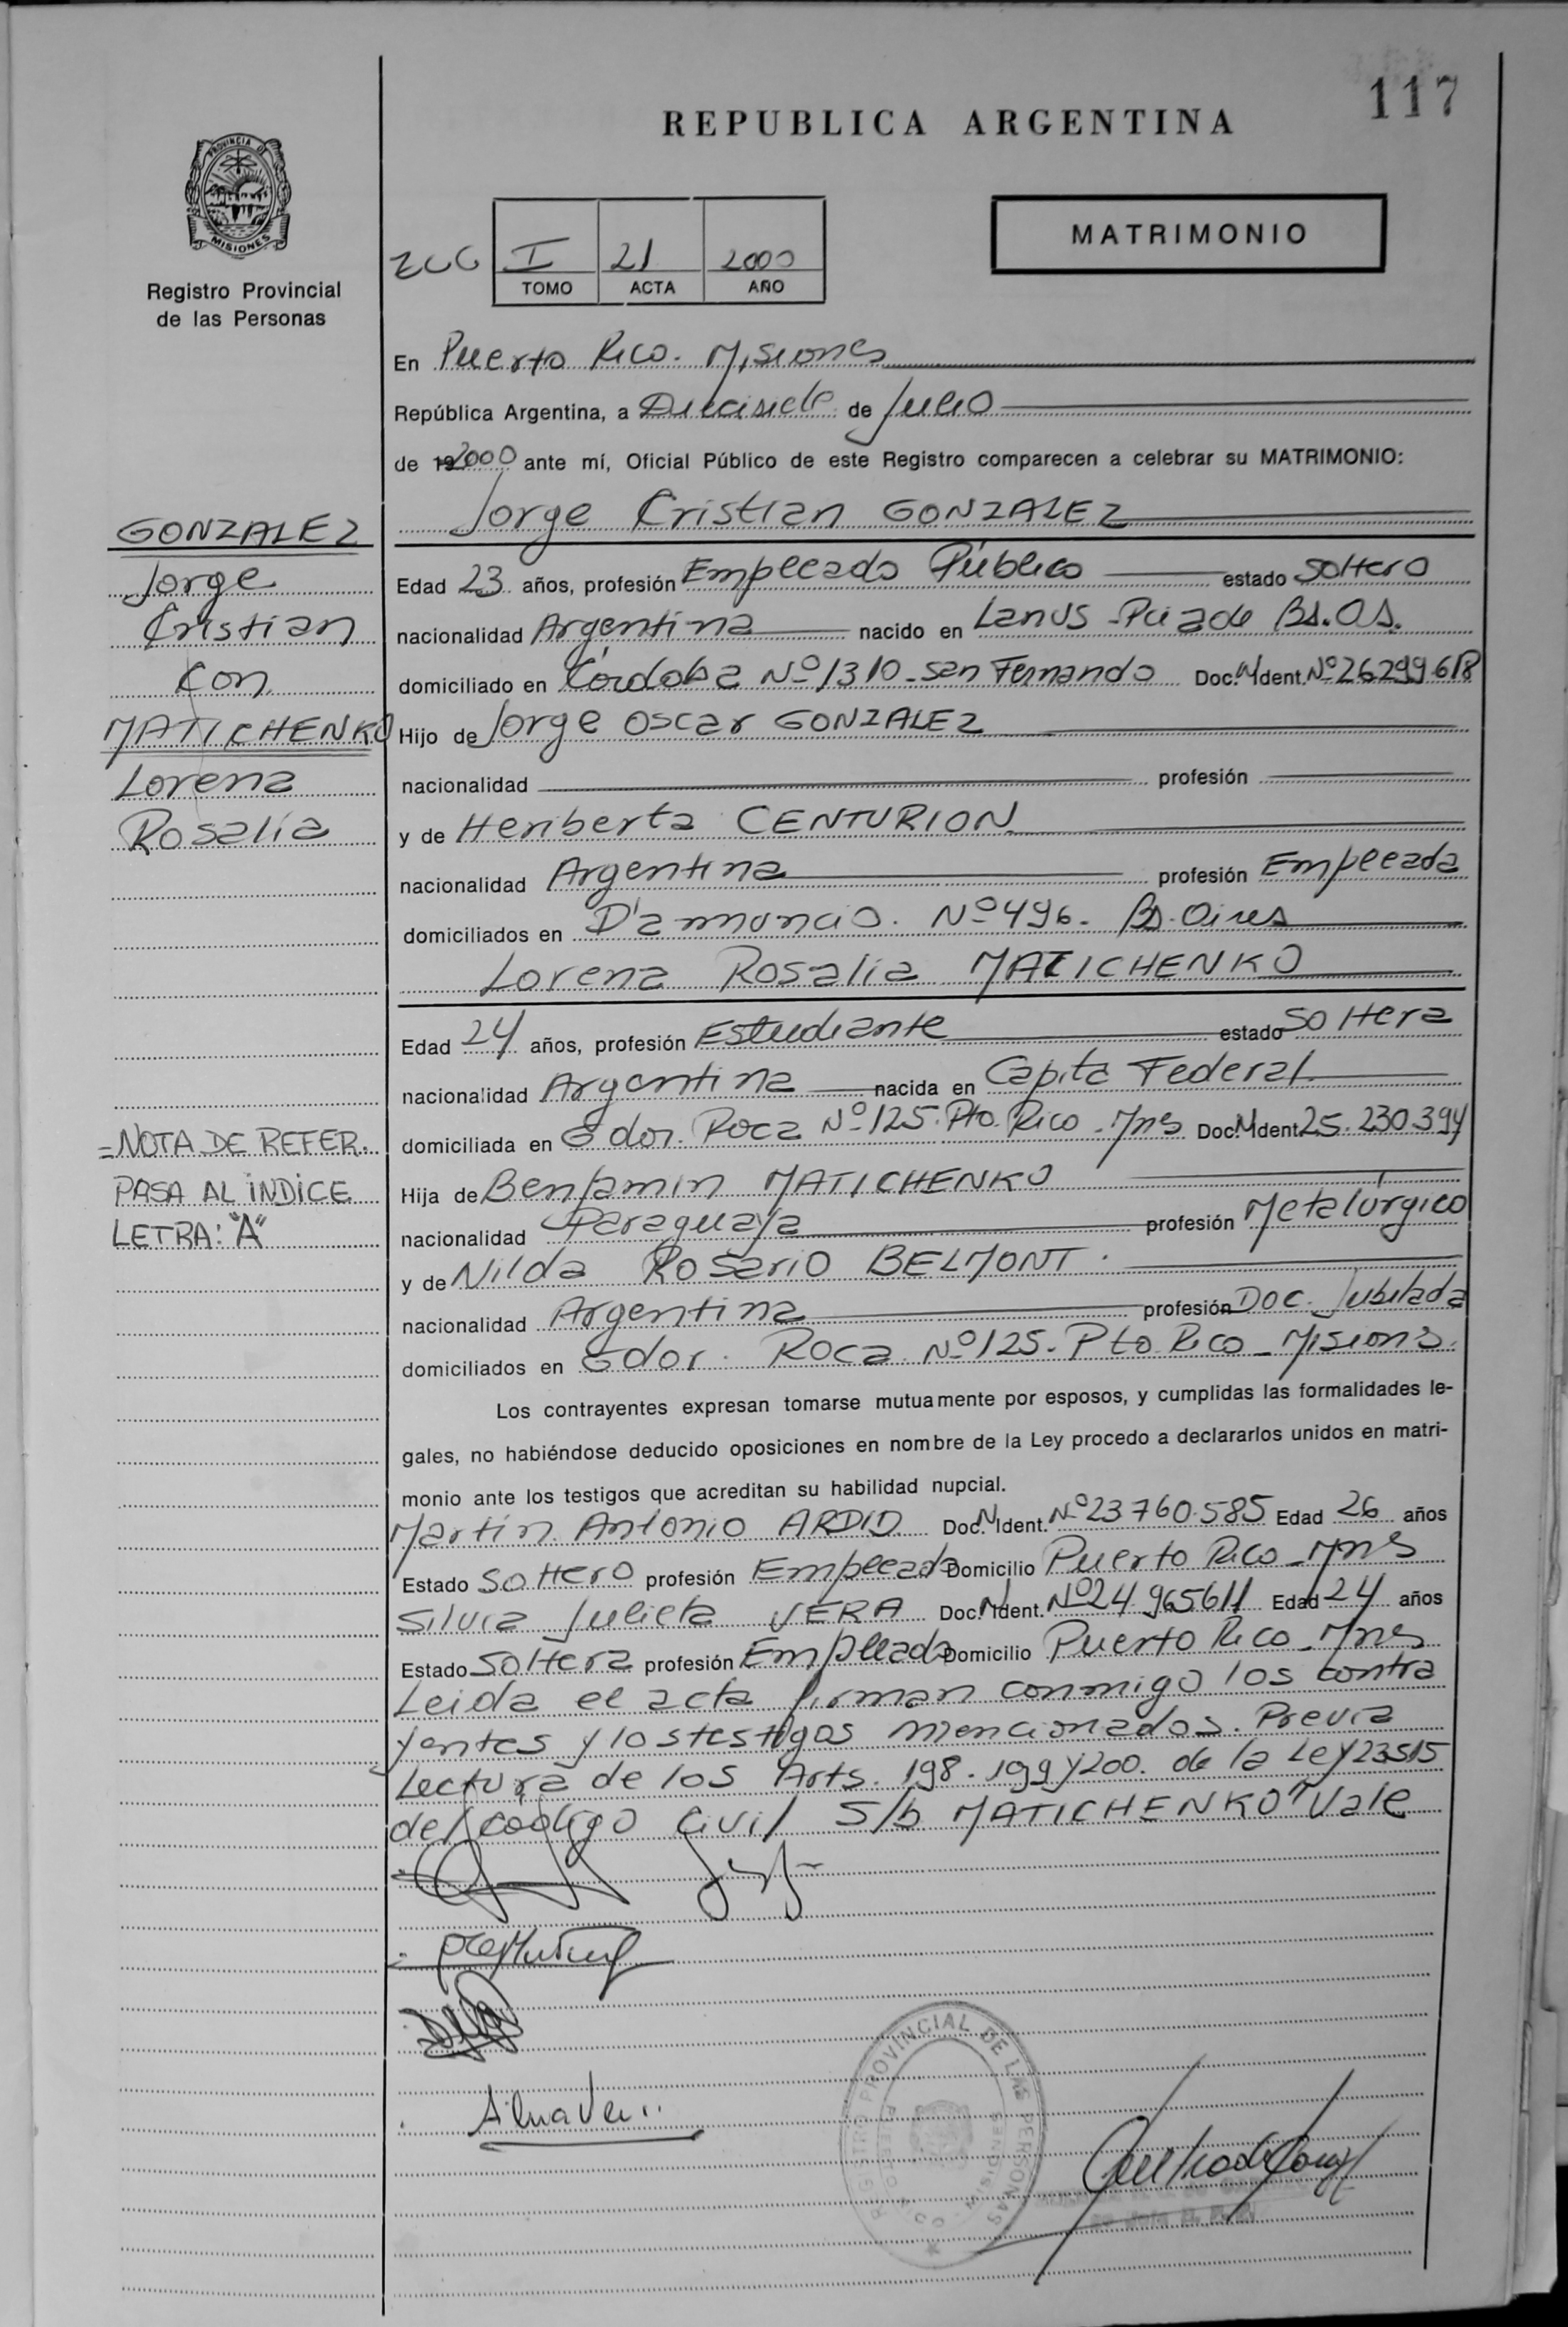 117
REPUBLICA ARGENTINA
PROVINCIA DE
MISIONES
Registro Provincial
de las Personas
I 21 2000
TOMO ACTA AÑO
MATRIMONIO
En Puerto Rico. Misiones
República Argentina, a Diecisiete de Julio
de 192000 ante mí, Oficial Público de este Registro comparecen a celebrar su MATRIMONIO:
Jorge Cristian GONZALEZ
Edad 23 años, profesión Empleado Público estado Soltero
nacionalidad Argentina nacido en Lanus - Pcia de Bs. As.
domiciliado en Córdoba Nº 1310 - San Fernando Doc. N. Ident. Nº 26299618
Hijo de Jorge Oscar GONZALEZ
nacionalidad profesión
y de Heriberta CENTURION
nacionalidad Argentina profesión Empleada
domiciliados en D'annuncio. Nº 496 - Bs. Aires
Lorena Rosalia MATICHENKO
Edad 24 años, profesión Estudiante estado Soltera
nacionalidad Argentina nacida en Capita Federal
domiciliada en Gdor. Roca Nº 125. Pto. Rico - Mnes Doc. N. Ident. 25.230.394
Hija de Benjamin MATICHENKO
nacionalidad Paraguaya profesión Metalúrgico
y de Nilda Rosario BELMONT.
nacionalidad Argentina profesión Doc. Jubilada
domiciliados en Gdor. Roca Nº 125 - Pto Rico - Misions.
Los contrayentes expresan tomarse mutuamente por esposos, y cumplidas las formalidades le-
gales, no habiéndose deducido oposiciones en nombre de la Ley procedo a declararlos unidos en matri-
monio ante los testigos que acreditan su habilidad nupcial.
Martín Antonio ARDID Doc. N. Ident. Nº 23.760.585 Edad 26 años
Estado Soltero profesión Empleado Domicilio Puerto Rico - Mnes
Silvia Julieta VERA Doc. N. Ident. Nº 24.965611 Edad 24 años
Estado Soltera profesión Empleada Domicilio Puerto Rico - Mnes
Leida el acta firman conmigo los contra
yentes y los testigos mencionados. Previa
Lectura de los Arts. 198 - 199 y 200. de la Ley 23515
del código Civil S/b MATICHENKO" Vale
GONZALEZ
Jorge
Cristian
Con
MATICHENKO
Lorena
Rosalía
= NOTA DE REFER.
PASA AL INDICE
LETRA: "A"
REGISTRO PROVINCIAL DE LAS PERSONAS
PUERTO RICO - MISIONES